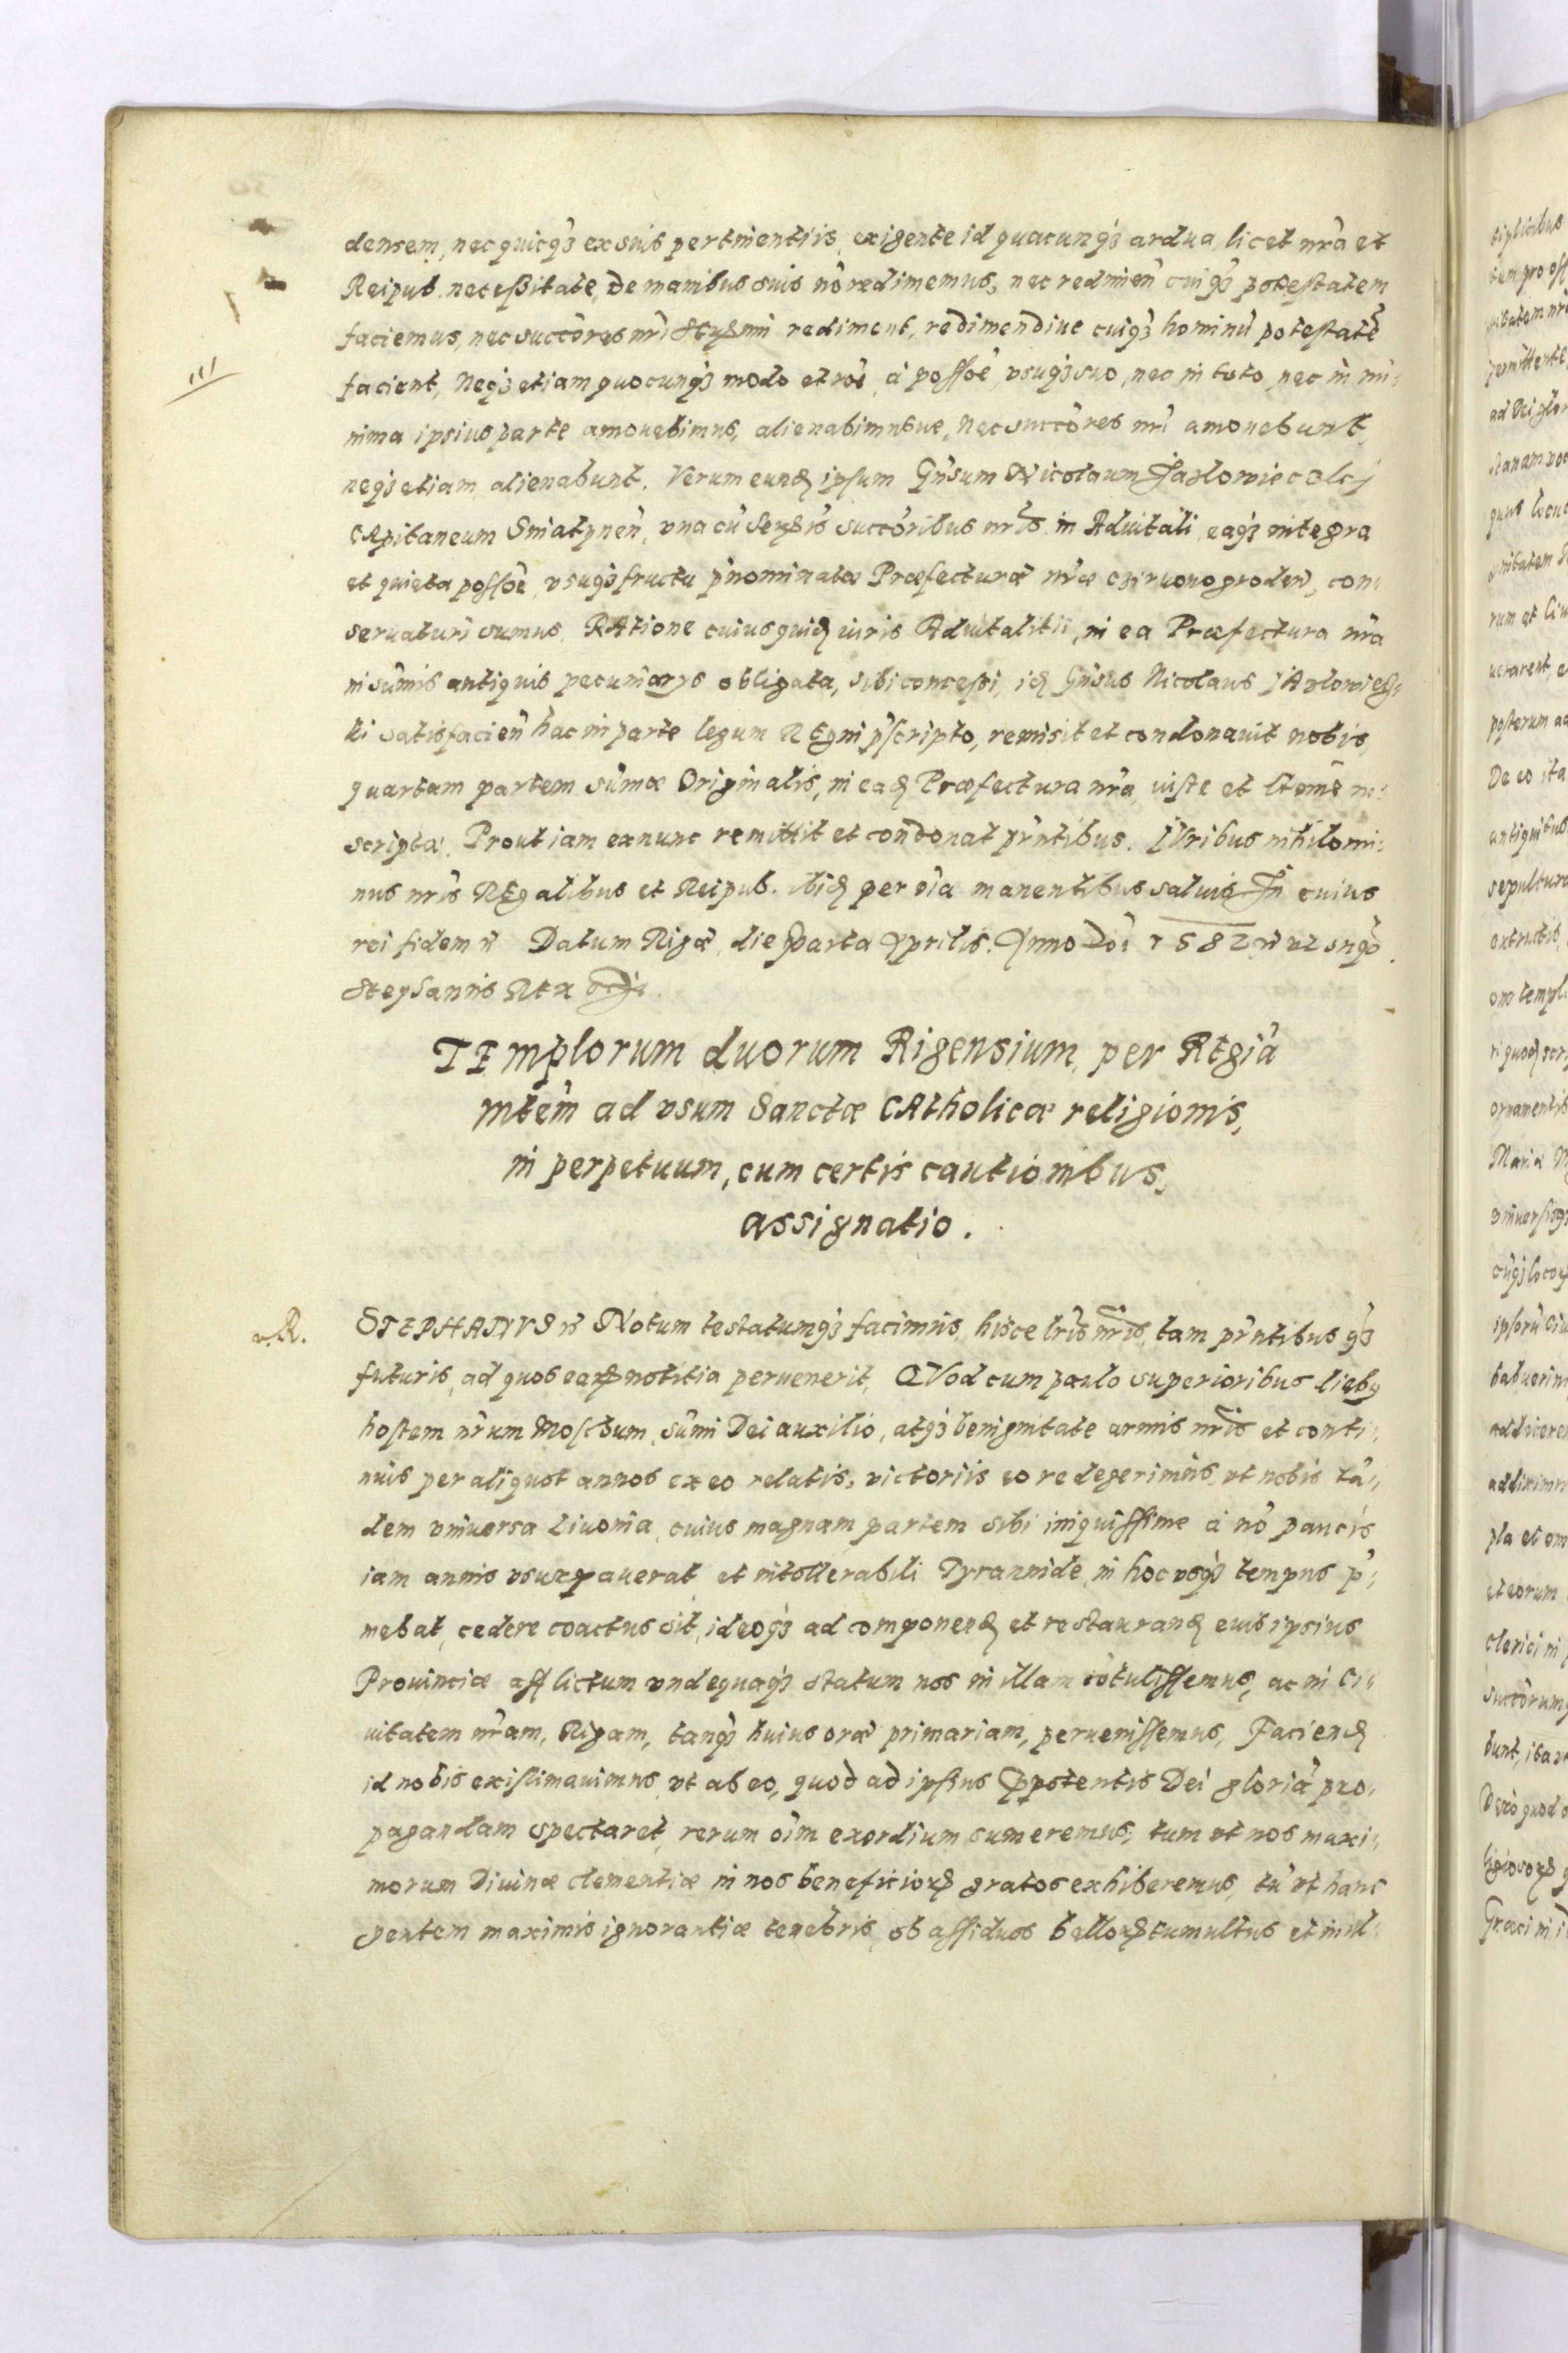 densem, nec quicq3 ex suis pertinentiis, exigente id quacunq3 ardua, licet nr̃a et
Reipub. necessitate, De manibus suis nõ redimemus, nec redimen̄ cuiq3 potestatem
faciemus, nec succõres nr̃i Sere̅mi rediment, redimendiue cuiq3 hominũ potestatẽ
facient, Neq3 etiam quocunq3 modo et rõe, à possõe, vsuq3 suo, nec in toto, nec in mi:
nima ipsius parte amouebimus, alienabimusue, Nec succõres nr̃i amouebunt,
neq3 etiam alienabunt. Verum eund ipsum Gñsum Nicolaum Jazlowieczkj
CApitaneum Sniatynen̄, vna cũ Sere̅is succõribus nr̃is in Aduitali, eaq3 integra
et quieta possõe, vsuq3 fructu p̃nominatæ Præfecturæ nr̃æ Czirwonogroden̄, con:
seruaturi sumus. RAtione cuius quid iuris Aduitalitii, in ea Præfectura nr̃a
in sum̃is antiquis pecuniarys obligata, sibi concessi, id Gñsus Nicolaus JAzlowiecz:
ki satisfacien̄ hac in parte legum REgni p̃scripto, remisit et condonauit nobis,
quartam partem sum̃æ Originalis, in ead Præfectura nr̃a, iuste et in:
scriptæ. Prout iam ex nunc remittit et condonat pr̃ntibus. IVribus nihilomi:
nus nr̃is REgalibus et Reipub. ibid per oĩa manentibus saluis In cuius
rei fidem Datum Rigæ, die Aprilis. Anno Dñi 1582 vt supõ.
Stephanus REx
TEmplorum duorum Rigensium, per REgiã
Mtẽm ad vsum Sanctæ CAtholicæ religionis,
in perpetuum, cum certis cautionibus,
assignatio.
R. STEPHANVS Notum testatumq3 facimus, hisce lr̃is nr̃is, tam pr̃ntibus q3
futuris, ad quos earꝝ notitia peruenerit, QVod cum paulo superioribus dieb9
hostem nr̃um Moschum, sum̃i Dei auxilio, atq3 benignitate armis nr̃is et conti:
nuis per aliquot annos ex eo relatis, victoriis eo redegerimus, vt nobis tã:
dem vniuersa Liuonia, cuius magnam partem sibi iniquissime à nõ paucis
iam annis vsurpauerat et intollerabili Tyrannide, in hoc vsq3 tempus p̃:
mebat, cedere coactus sit, ideoq3 ad componend et restaurand eius ipsius
Prouinciæ afflictum vndequaq3 statum nos in illam cõtulissemus, ac in Ci:
uitatem nr̃am, Rigam, tanq3 huius oræ primariam, peruenissemus, Faciend
id nobis existimauimus, vt ab eo, quod ad ipsius pp̃otentis Dei gloriã pro:
pagandam spectaret, rerum oĩm exordium sumeremus, tum vt nos maxi:
morum Diuinæ clementiæ in nos beneficiorꝝ gratos exhiberemus, tũ vt hanc
gentem maximis ignorantiæ tenebris, ob assiduos bellorꝝ tumultus et mul: